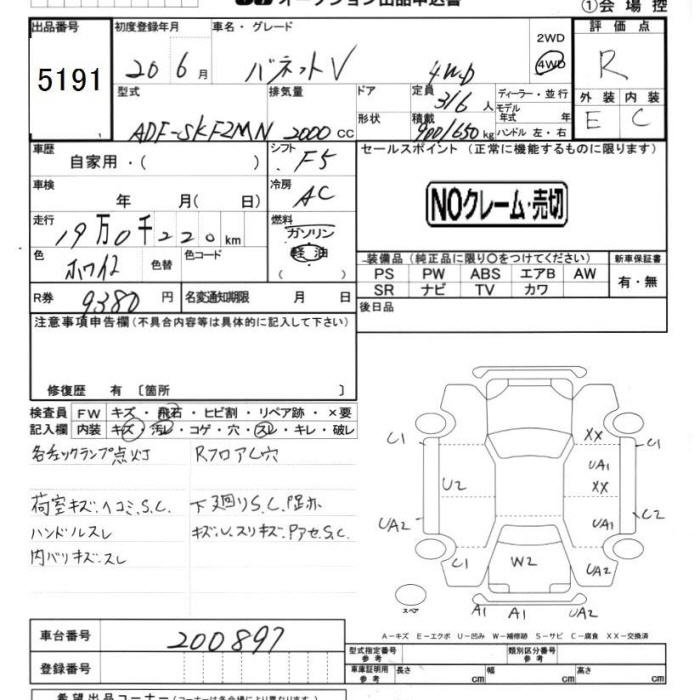 オークション出品申込書
①会場控
出品番号
5191
初度登録年月
20 6月
車名・グレード
バネットV
4WD
2WD
4WD
評価点
R
型式
ADF-SKF2MN
排気量
2000 CC
ドア
形状
定員
3/6人
積載
900/650kg
ディーラー・並行
モデル
年式 年
ハンドル 左・右
外装 内装
E C
車歴
自家用・( )
シフト
F5
セールスポイント (正常に機能するものに限ります)
NOクレーム・売切
車検
年 月( 日)
冷房
AC
走行
19万0千220km
燃料
ガソリン
軽油
( )
色
ホワイト
色替
色コード
装備品(純正品に限り○をつけてください)
新車保証書
PS PW ABS エアB AW
SR ナビ TV カワ
有・無
R券
9380円
名変通知期限 月 日
後日品
注意事項申告欄(不具合内容等は具体的に記入して下さい)
修復歴 有 〔箇所 〕
検査員 FW キズ・飛石・ヒビ割・リペア跡・×要
記入欄 内装 キズ・汚レ・コゲ・穴・スレ・キレ・破レ
各チェックランプ点灯 RフロアC穴
荷室キズ.ヘコミ.S.C. 下廻りS.C.
ハンドルスレ キズ.U.スリキズ.Pアセ.S.C.
内バリキズ.スレ
C1 XX C1
UA1
U2 XX
UA2 UA1 C2
C1 W2 UA2
スペア
A1 A1 UA2
A−キズ E−エクボ U−凹み W−補修跡 S−サビ C−腐食 XX−交換済
車台番号
200897
登録番号
型式指定番号
参考
類別区分番号
参考
車庫証明用
参考
長さ cm 幅 cm 高さ cm
希望出品コーナー(コーナーは各会場により異なります。)